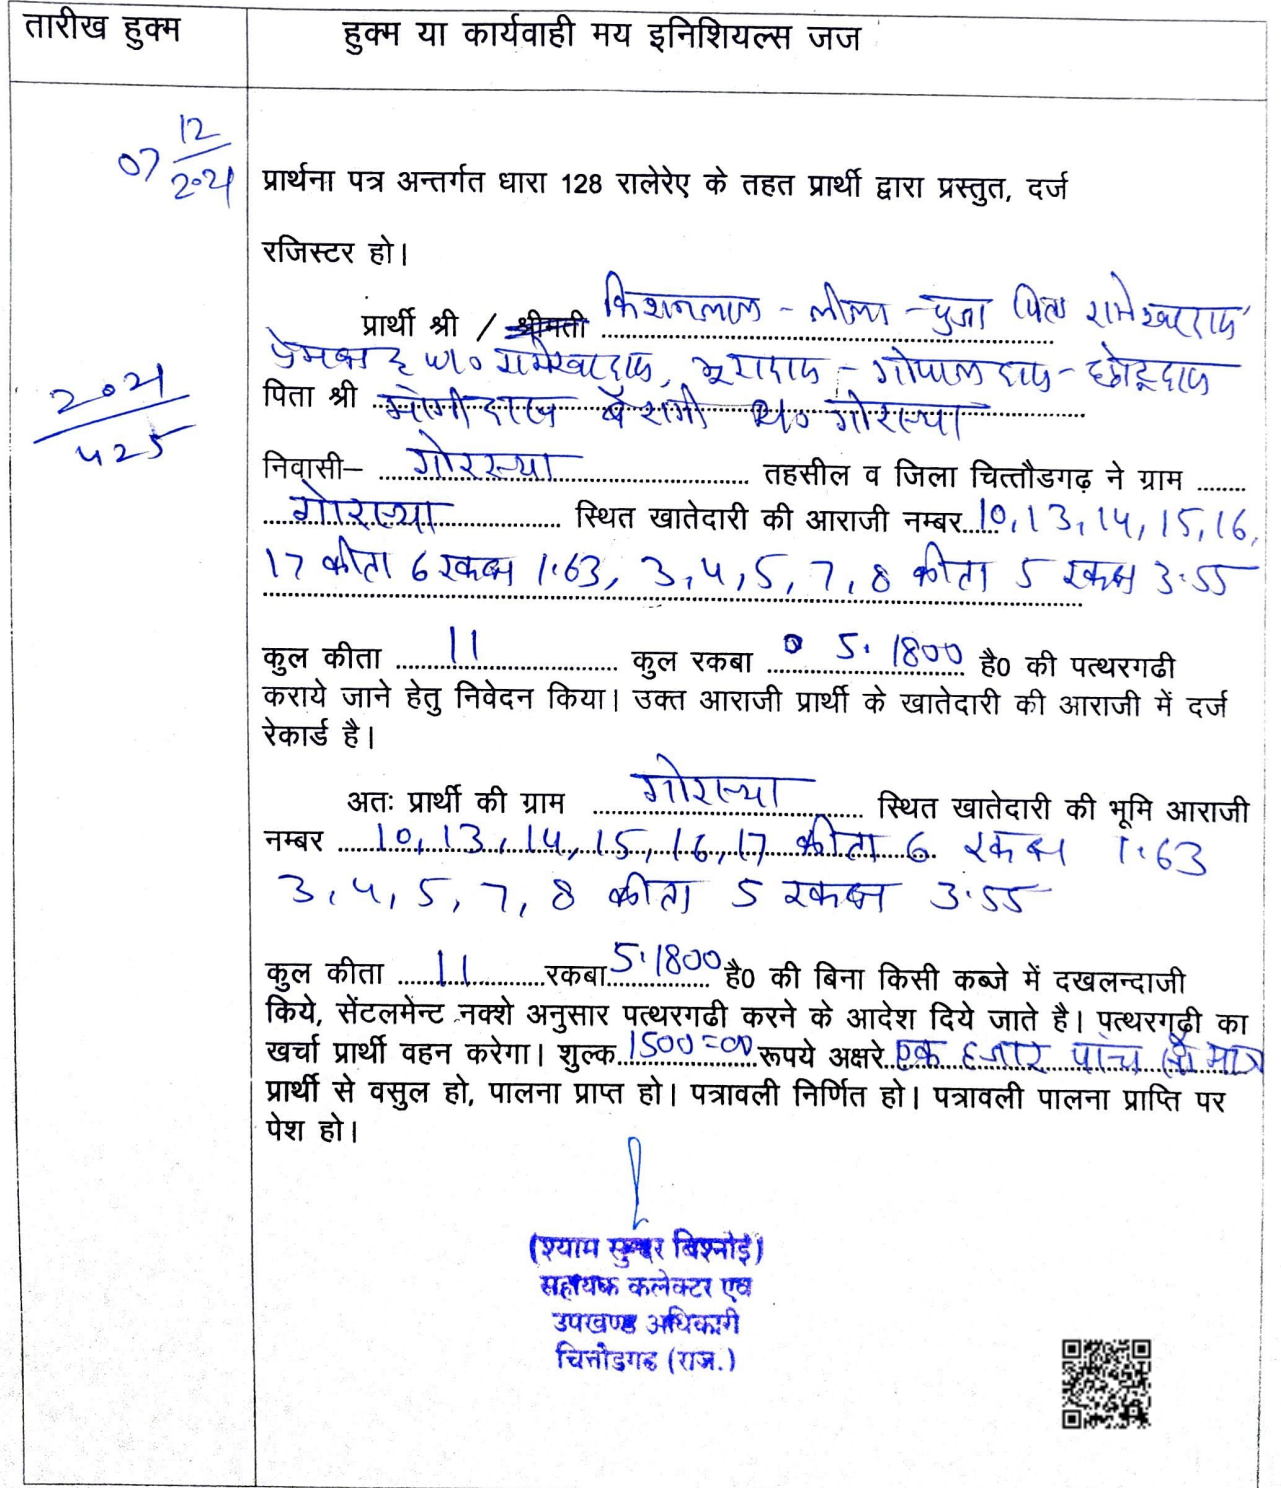 तारीख हुक्म
हुक्म या कार्यवाही मय इनिशियल्स जज
07 12/2021
प्रार्थना पत्र अन्तर्गत धारा 128 रालेरेए के तहत प्रार्थी द्वारा प्रस्तुत, दर्ज
रजिस्टर हो।
प्रार्थी श्री / श्रीमती किशनलाल - लीला - पुजा पिता रामेश्वरदास
w/o रामेश्वरदास, भूरादास - गोपालदास - छोटूदास
2021/425
पिता श्री ........ बैरागी R/o गोरस्या
निवासी– गोरस्या ........ तहसील व जिला चित्तौडगढ़ ने ग्राम ........
गोरस्या ........ स्थित खातेदारी की आराजी नम्बर 10, 13, 14, 15, 16,
17 कीता 6 रकबा 1.63, 3, 4, 5, 7, 8 कीता 5 रकबा 3.55
कुल कीता 11 ........ कुल रकबा 5.1800 है0 की पत्थरगढी
कराये जाने हेतु निवेदन किया। उक्त आराजी प्रार्थी के खातेदारी की आराजी में दर्ज
रेकार्ड है।
अतः प्रार्थी की ग्राम गोरस्या ........ स्थित खातेदारी की भूमि आराजी
नम्बर 10, 13, 14, 15, 16, 17 कीता 6 रकबा 1.63
3, 4, 5, 7, 8 कीता 5 रकबा 3.55
कुल कीता 11 ........ रकबा 5.1800 है0 की बिना किसी कब्जे में दखलन्दाजी
किये, सेंटलमेन्ट नक्शे अनुसार पत्थरगढी करने के आदेश दिये जाते है। पत्थरगढ़ी का
खर्चा प्रार्थी वहन करेगा। शुल्क 1500=00 रूपये अक्षरे एक हजार पांच सौ मात्र
प्रार्थी से वसुल हो, पालना प्राप्त हो। पत्रावली निर्णित हो। पत्रावली पालना प्राप्ति पर
पेश हो।
(श्याम सुन्दर बिश्नोई)
सहायक कलेक्टर एवं
उपखण्ड अधिकारी
चित्तौडगढ (राज.)